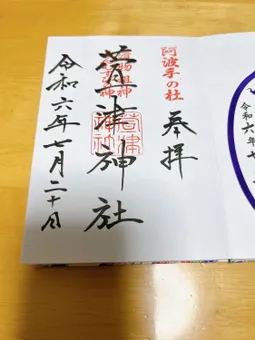 阿波手の社
奉拝
萱津神社
令和六年七月二十日
令和六年七